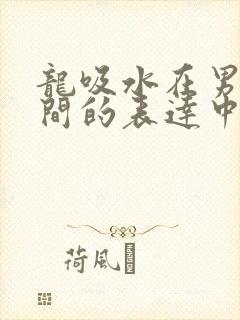 龍吸水在男
間的表達中
荷風